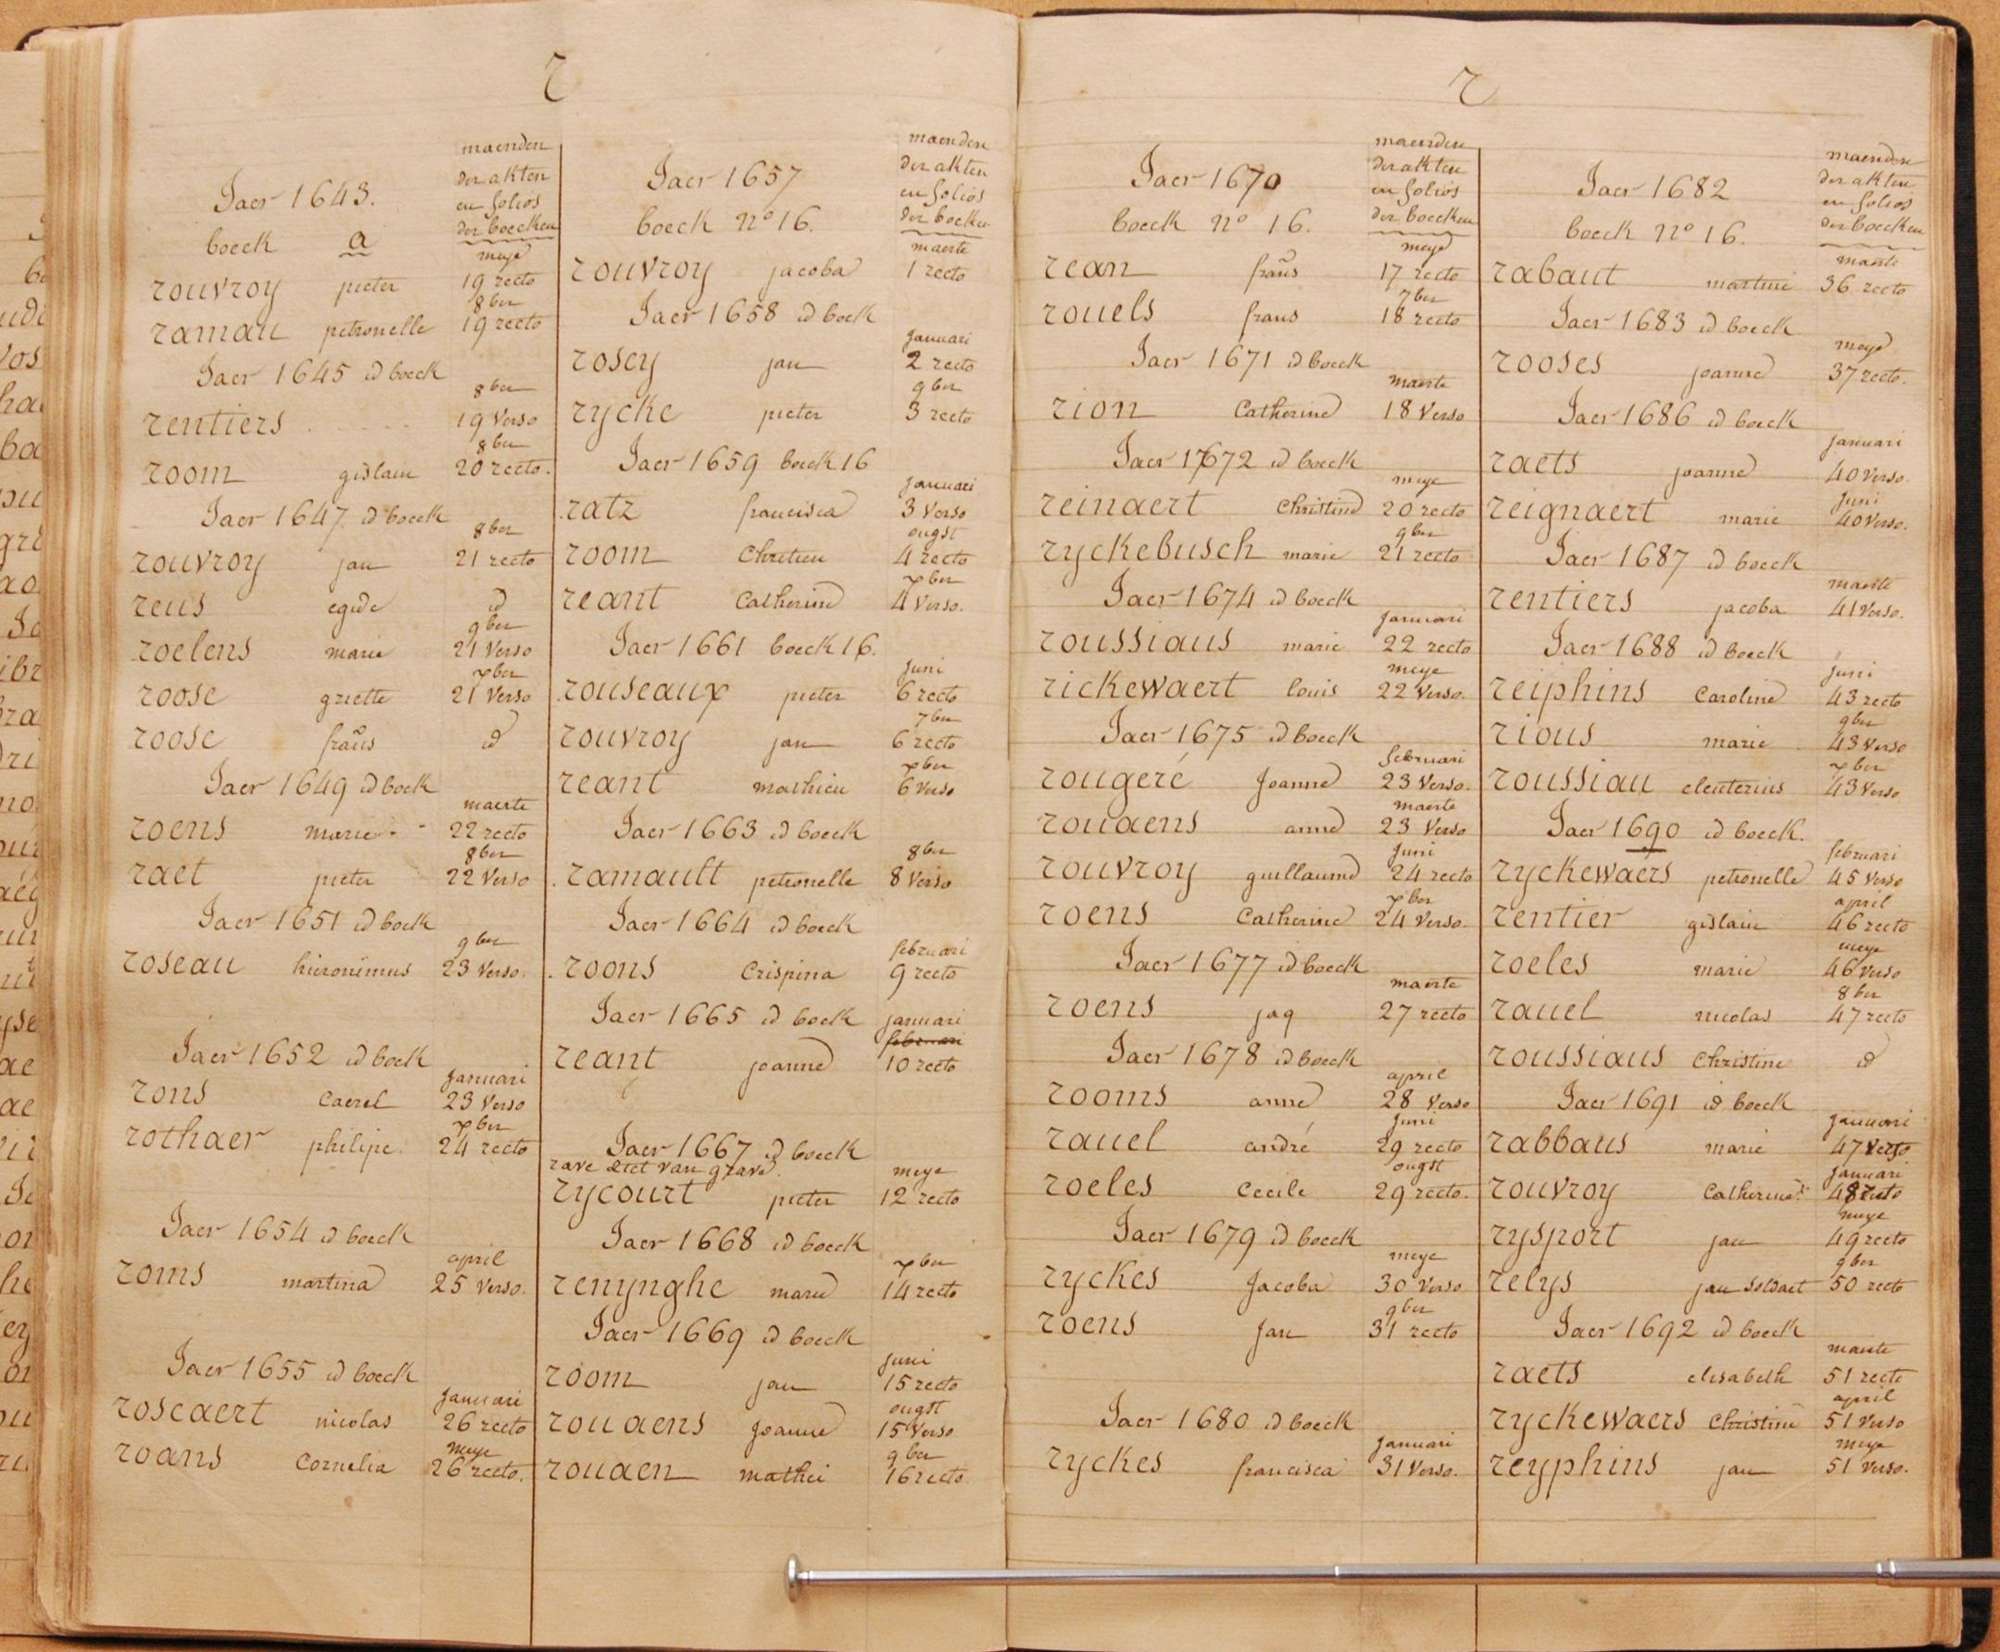 r
maenden
der akten
Jaer 1643. en folios
der boecken
boeck a meye
rouvroy pieter 19 recto
8ber
ramau petronelle 19 recto
Jaer 1645 id boeck
8ber
rentiers 19 Verso
8ber
room gislain 20 recto.
Jaer 1647 id boeck
8ber
rouvroy jan 21 recto
reus egide id
9ber
roelens marie 21 Verso
xber
roose griette 21 Verso
roose frans id
Jaer 1649 id boek
maerte
roens marie 22 recto
8ber
raet pieter 22 Verso
Jaer 1651 id boek
9ber
roseau hieronimus 23 Verso.
Jaer 1652 id boek
Januari
rons Caerel 23 Verso
xber
rothaer philipe. 24 recto
Jaer 1654 id boeck
april
roms martina 25 Verso.
Jaer 1655 id boeck
Januari
roseaert nicolas 26 recto
meye
roans Cornelia 26 recto.
maenden
der akten
Jaer 1657 en folios
der boecken
boeck Nº 16. maerte
rouvroy jacoba 1 recto
Jaer 1658 id boek
Januari
rosey jan 2 recto
9ber
rycke pieter 3 recto
Jaer 1659 boek 16
Januari
ratz francisca 3 Verso
ougst
room Chretien 4 recto
xber
reant Catherine 4 Verso.
Jaer 1661 boeck 16.
Juni
rouseaux pieter 6 recto
7ber
rouvroy jan 6 recto
xber
reant mathieu 6 Verso
Jaer 1663 id boeck
8ber
ramault petronelle 8 Verso
Jaer 1664 id boeck
februari
roons Crispina 9 recto
Jaer 1665 id boek januari
februari
reant joanne 10 recto
Jaer 1667 id boeck
rave siet van grave. meye
rycourt pieter 12 recto
Jaer 1668 id boeck
xber
renynghe marie 14 recto
Jaer 1669 id boeck
Juni
room jan 15 recto
ougst
rouaens Joanne 15 Verso
9ber
rouaen mathei 16 recto.
r
maenden
der akten
Jaer 1670 en folios
der boecken
boeck Nº 16. meye
rean frans 17 recto
7ber
rouels frans 18 recto
Jaer 1671 id boeck
maerte
rion Catherine 18 Verso
Jaer 1672 id boeck
meye
reinaert Christine 20 recto
9ber
ryckebusch marie 21 recto
Jaer 1674 id boeck
Januari
roussiaus marie 22 recto
meye
rickewaert louis 22 Verso.
Jaer 1675 id boeck
februari
rougeré Joanne 23 Verso.
maerte
rouaens anne 23 Verso
Juni
rouvroy guillaume 24 recto
xber
roens Catherine 24 Verso.
Jaer 1677 id boeck
maerte
roens jaq 27 recto
Jaer 1678 id boeck
april
rooms anne 28 Verso
Juni
rauel andré 29 recto
ougst
roeles Cecile 29 recto.
Jaer 1679 id boeck
meye
ryckes Jacoba 30 Verso
9ber
roens Jan 31 recto
Jaer 1680 id boeck
Januari
ryckes francisca 31 Verso.
maenden
der akten
Jaer 1682 en folios
der boecken
boeck Nº 16.
maerte
rabaut martine 36 recto
Jaer 1683 id boeck
meye
rooses joanne 37 recto.
Jaer 1686 id boeck
Januari
raets joanne 40 Verso.
Juni
reignaert marie 40 Verso.
Jaer 1687 id boeck
maerte
rentiers jacoba 41 Verso.
Jaer 1688 id boeck
Juni
reiphins Caroline 43 recto
9ber
rious marie 43 Verso
xber
roussiau eleuterius 43 Verso
Jaer 1690 id boeck.
februari
ryckewaers petronelle 45 Verso
april
rentier gislain 46 recto
meye
roeles marie 46 Verso
8ber
rauel nicolas 47 recto
roussiaus Christine id
Jaer 1691 id boeck
januari
rabbaus marie 47 Verso
januari
rouvroy Catherine 48 recto
meye
rysport jan 49 recto
9ber
relys jan Soldaet 50 recto
Jaer 1692 id boeck
maerte
raets elisabeth 51 recto
april
ryckewaers Christine 51 Verso
meye
reyphins jan 51 Verso.